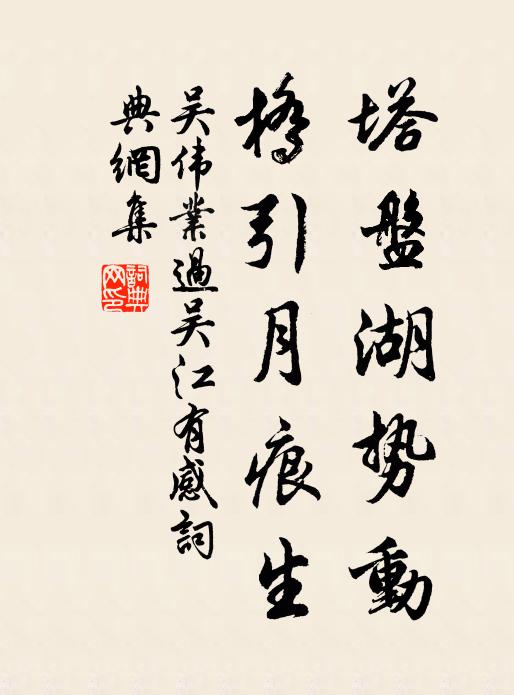 塔盤湖势動
橋引月痕生
吴伟業過吴江有感詞
典網集
詞典网印